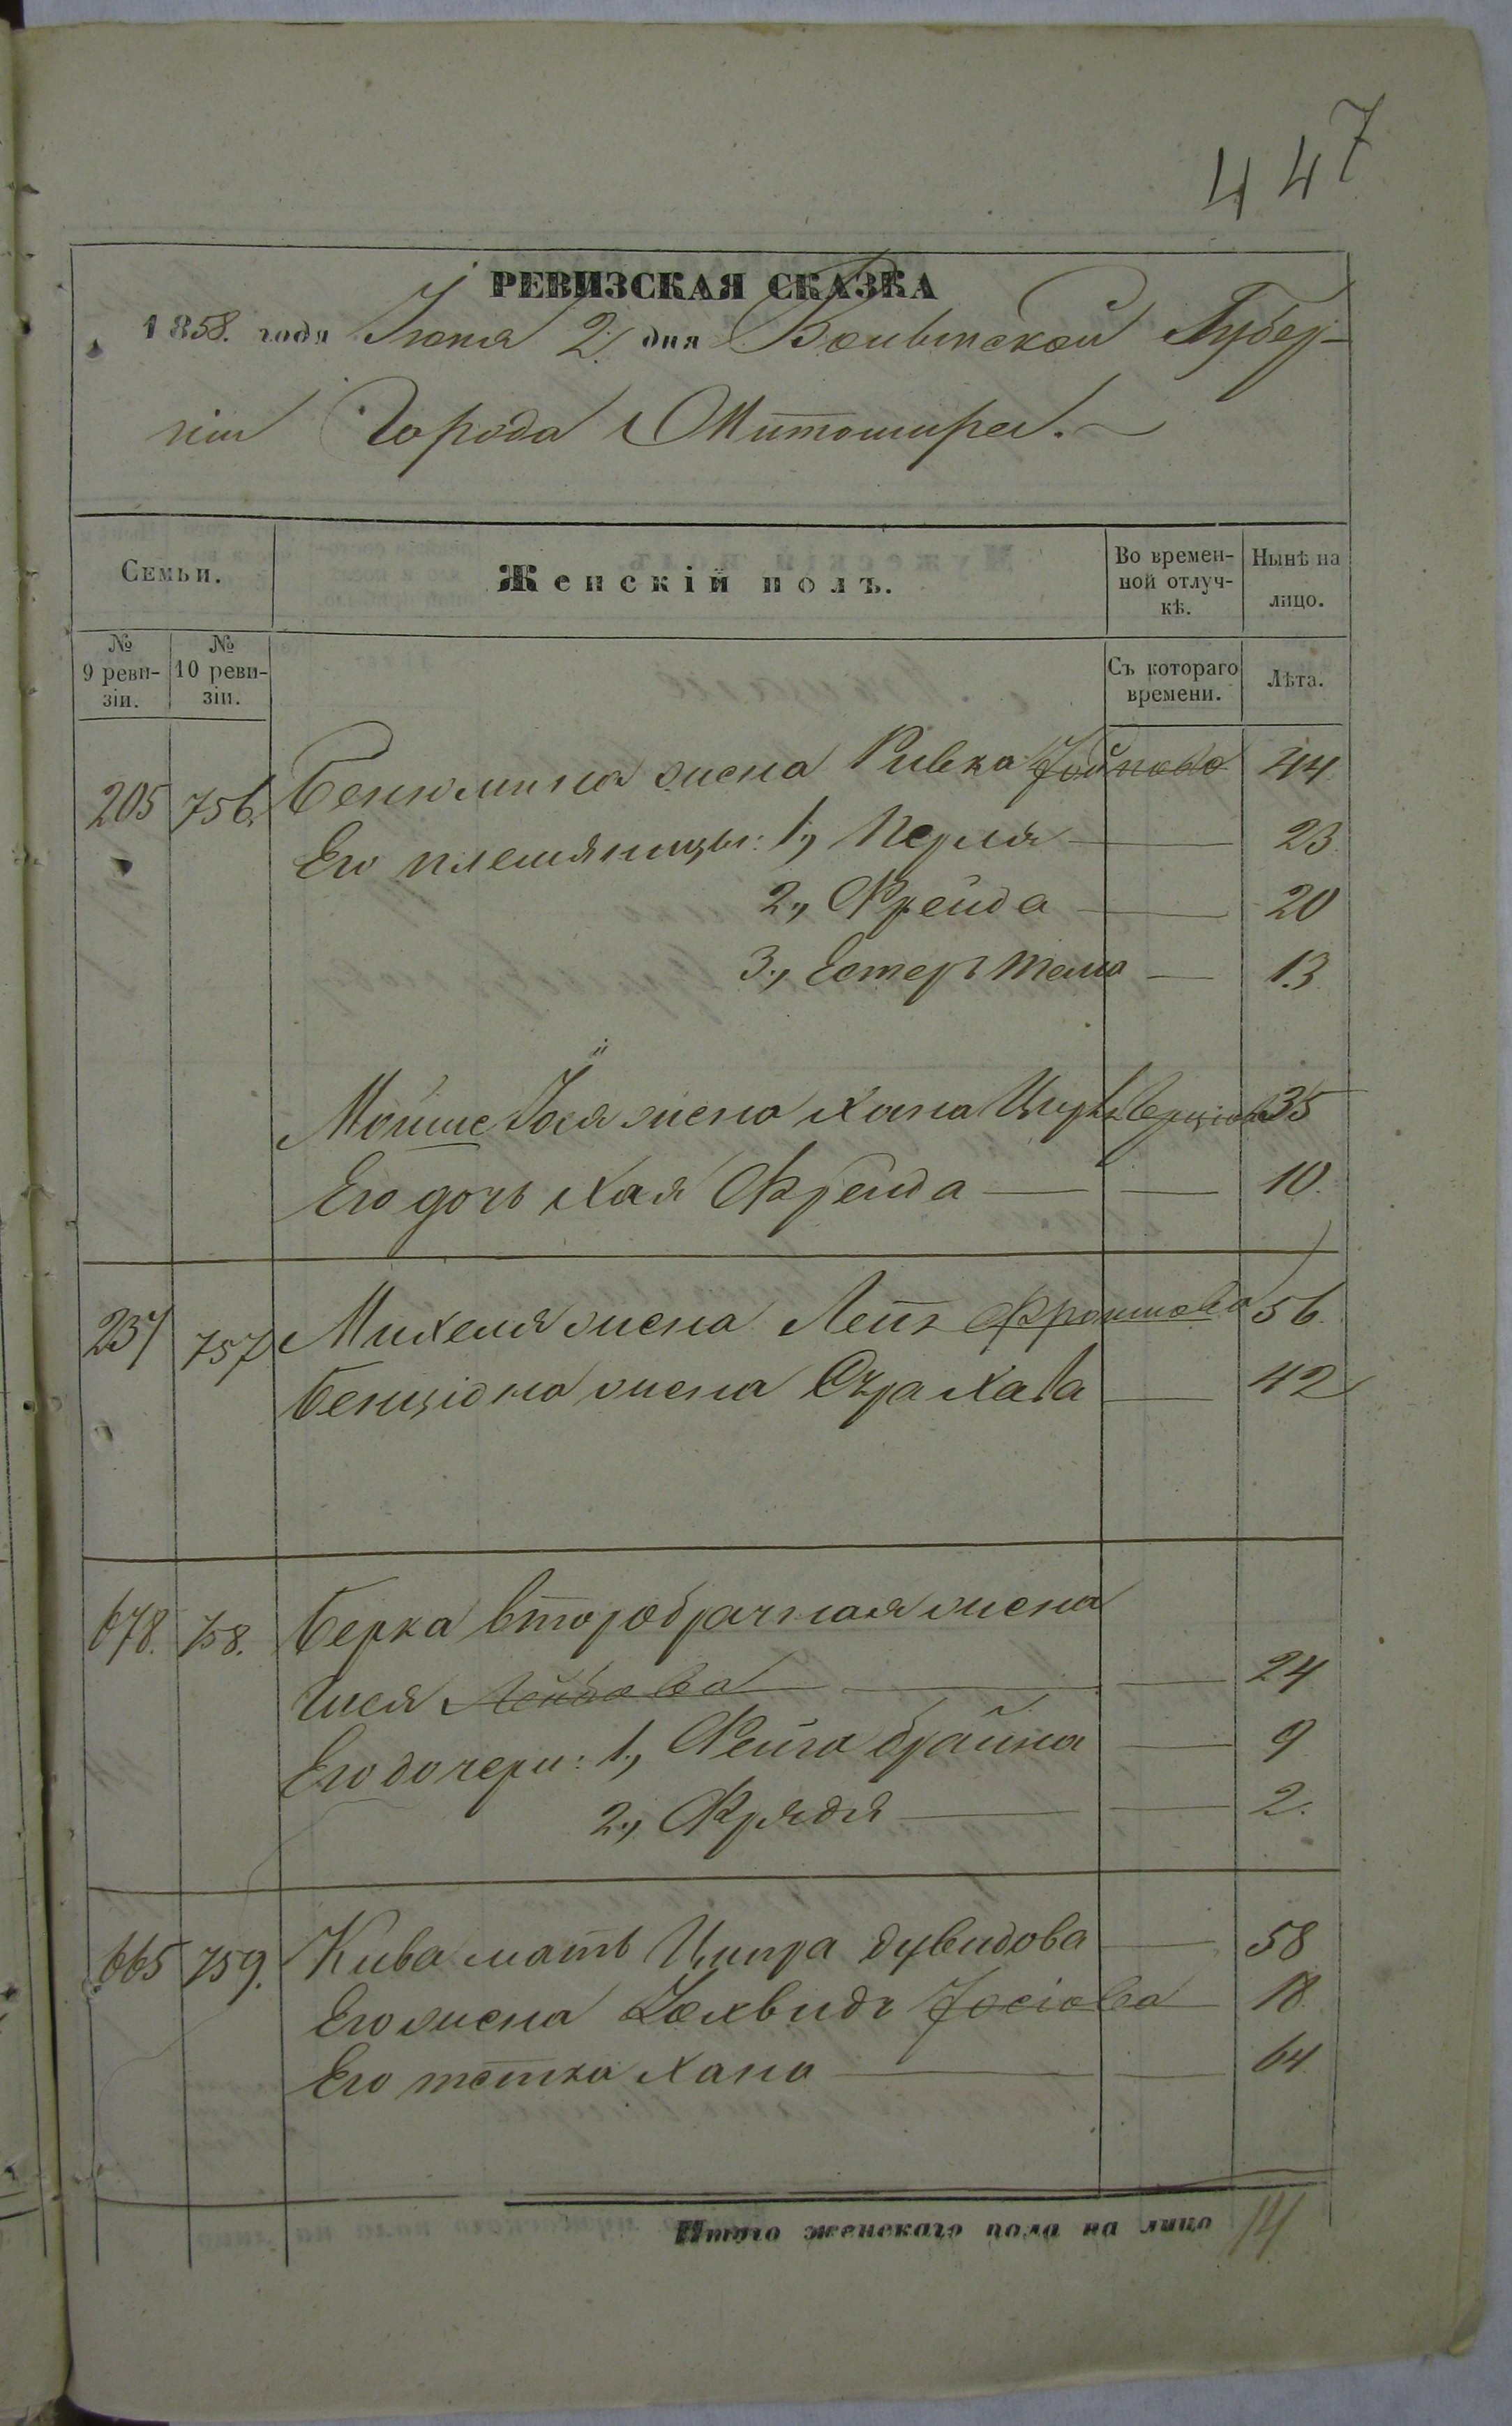 447
РЕВИЗСКАЯ СКАЗКА
1858. года Июня 2. дня Волынской Губер-
ніи Города Житомира.
Семьи.
Женскій полъ.
Во времен-
ной отлуч-
кѣ.
Нынѣ на
лицо.
№
9 реви-
зіи.
№
10 реви-
зіи.
Съ котораго
времени.
Лѣта.
205 756. Бенюмина жена Ривка 44
Его племянницы: 1, Перля 23.
2., Фрейда 20
3., Естеръ 13.
Мойше жена Хана 35
Его дочь Хая Фрейда 10.
237 757 Михеля жена 56.
Бенціона жена Сура Хава 42
678. 758. Берка второбрачная жена
Лейбова 24
Его дочери: 1., Фейга Брайна 9
2., Фрядя 2.
665 759. Кива мать Ципра Дувидова 58
Его жена Іосіова 18.
Его тетка Хана 64
Итого женскаго пола на лицо 14